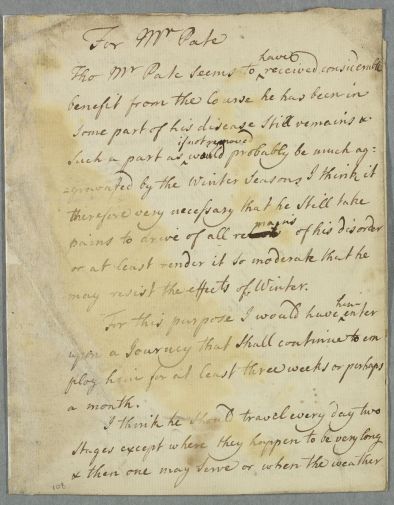 For Mr. Pate
Tho Mr Pate seems to have received considerable
benefit from the Course he has been in
some part of his disease still remains &
such a part as if not remove would probably be much ag:
=gravated by the Winter Season, I think it
therefore very necessary that he still take
pains to drive of all remains of his disorder
or at least render it so moderate that he
may resist the effects of Winter.
For this purpose I would have him enter
upon a Journey that shall continue to em
ploy him for at least three weeks or perhaps
a month.
I think he should travel every day two
stages except where they happen to be very long
& then one may serve or when the weather
108